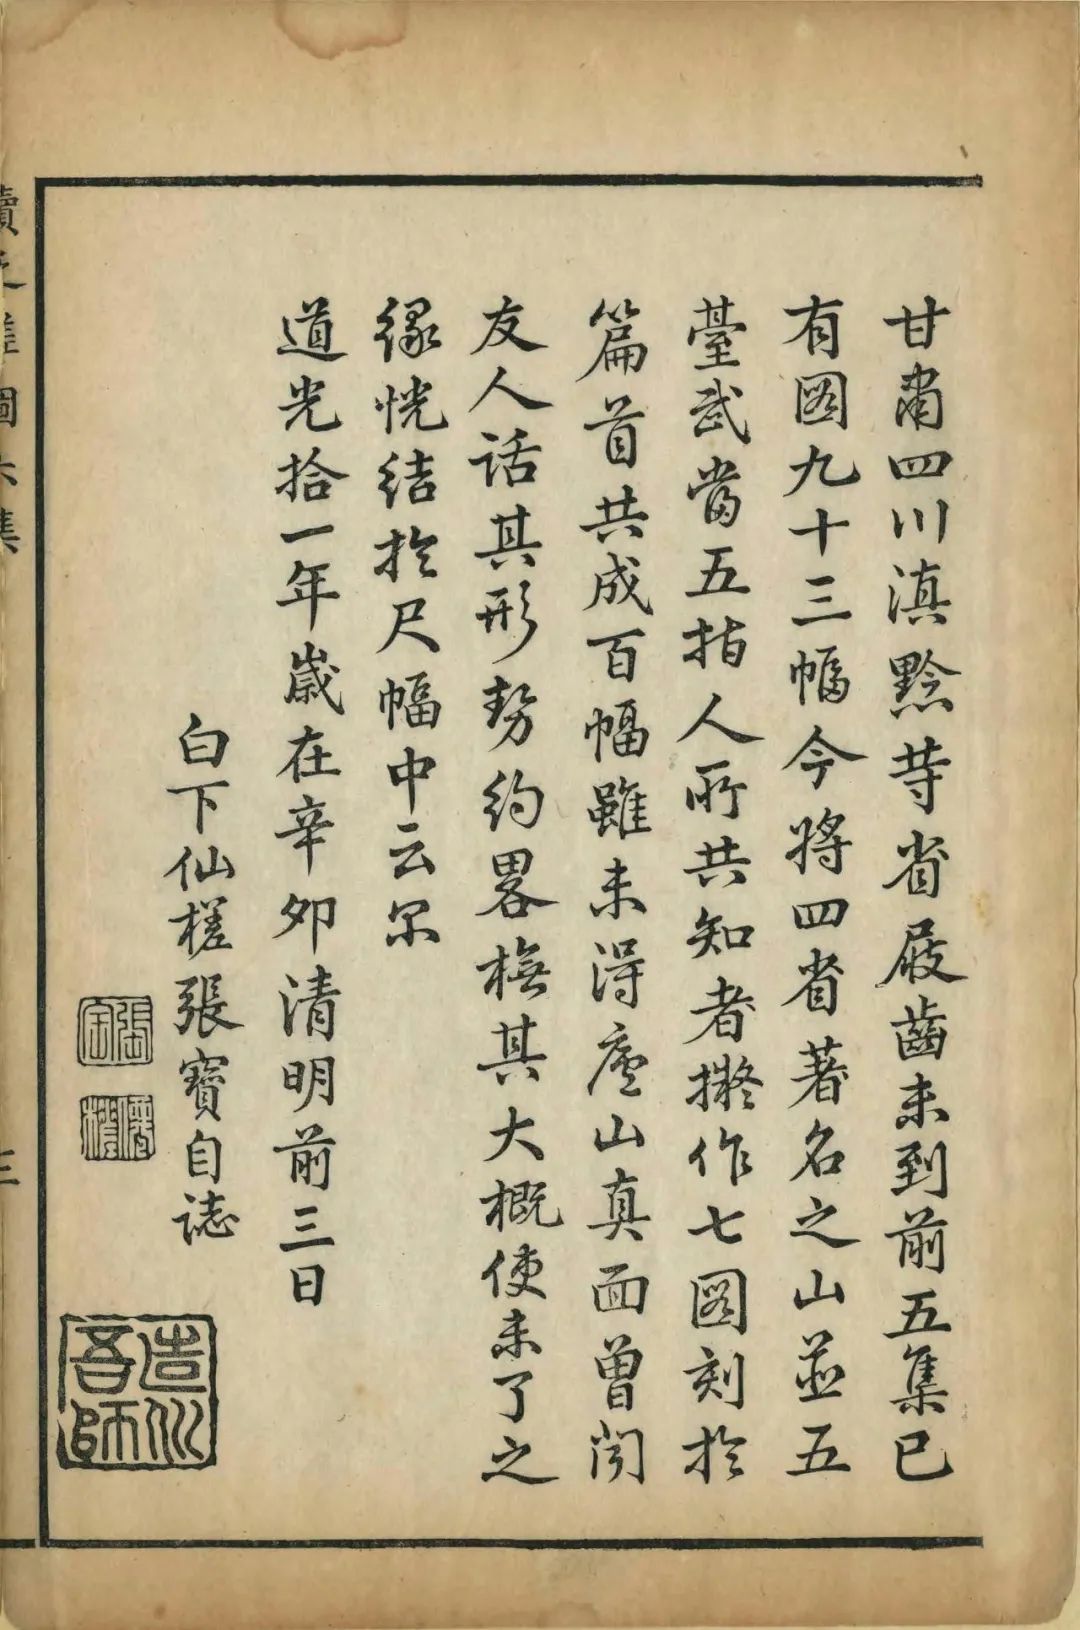 甘肅四川滇黔等省屐齒未到前五集已
有圖九十三幅今將四省著名之山並五
臺武當五指人所共知者擬作七圖刻於
篇首共成百幅雖未得廬山真面曾聞
友人話其形勢約畧橅其大概使未了之
緣恍結於尺幅中云尔
道光拾一年歲在辛卯清明前三日
白下仙槎張寶自誌
張寶
僊槎
造化吾師
續泛槎圖六集
三